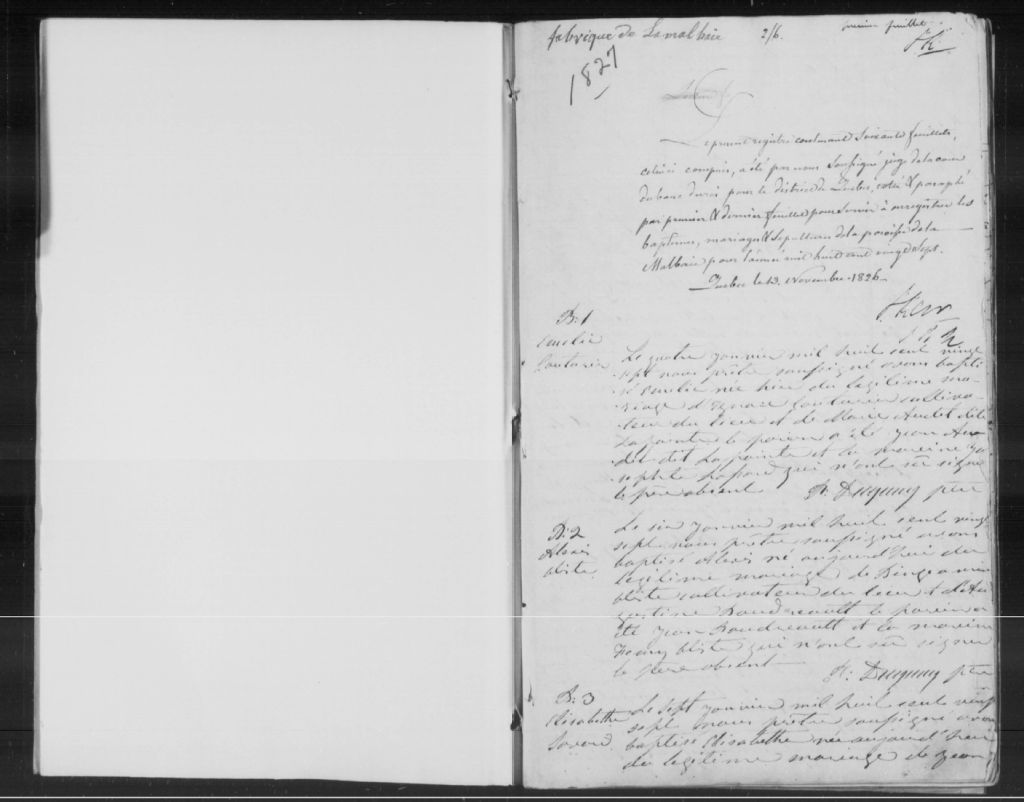 fabrique de Lamalbaie 2/6. premier feuillet
1827
Le présent registre contenant Soixante feuillets,
celui-ci compris, a été par nous Soussigné juge de la cour
du banc du roi pour le district de Quebec, coté & paraphé
par premier & dernier feuillet pour servir à enregistrer les
baptemes, mariages & Sepultures de la paroisse de la
Malbaie pour l'année mil huit cent vingt Sept.
Quebec le 13. Novembre 1826
Kerr
B: 1
Emelie
Le quatre janvier mil huit cent vingt
sept nous prêtre soussigné avons bapti-
sé Emelie née hier du legitime ma-
riage d'Ignace cultiva-
teur du lieu et de Marie Audet dit
Lapointe le parein a été Jean Au-
det dit La pointe et la mareine Jo-
sephte qui n'ont sû signé
le père absent H: Duguay ptre
B: 2
Alexis
Le six janvier mil huit cent vingt
sept nous prêtre soussigné avons
baptisé Alexis né aujourd'hui du
legitime mariage de
cultivateur du lieu & d'Au-
gustine Boudreault le parein a
été Jean Boudreault et la mareine
qui n'ont sû signer
le père absent
H: Duguay ptre
B: 3
Elisabethe
Le sept janvier mil huit cent vingt
sept nous prêtre soussigné avons
baptisé Elisabethe née aujourd'hui
du legitime mariage de Jean